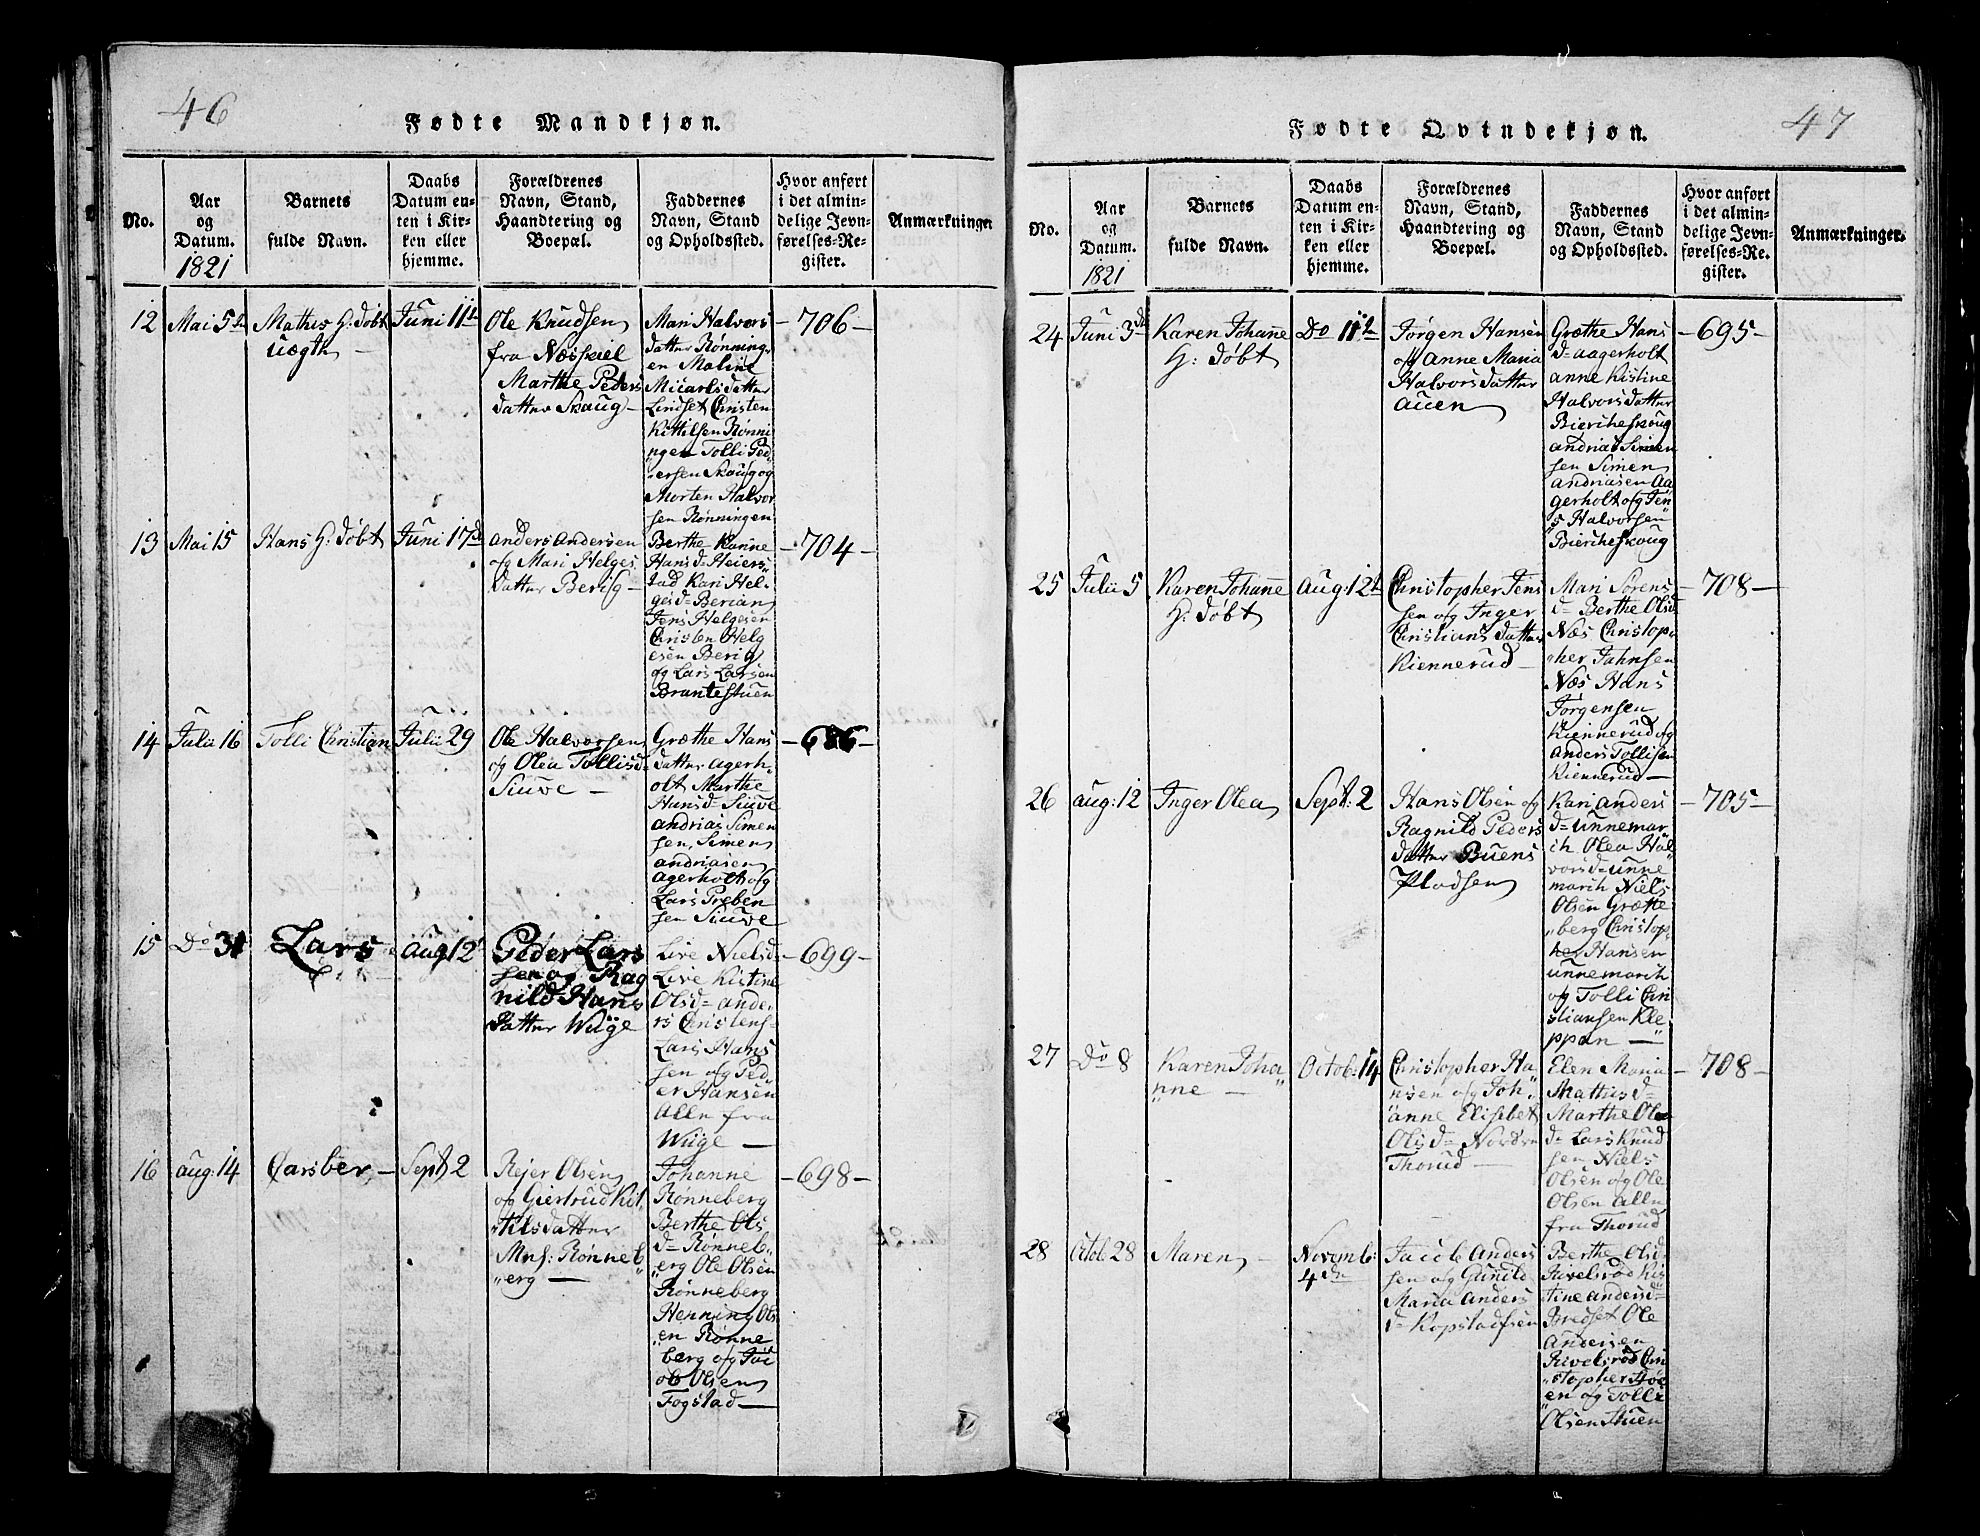 46
Fødte Mandkjøn.
No.
Aar
og
Datum.
1821
Barnets
fulde Navn.
Daabs
Datum en-
ten i Kir-
ken eller
hjemme.
Forældrenes
Navn, Stand,
Haandtering og
Boepæl.
Faddernes
Navn, Stand
og Opholdssted.
Hvor anført
i det almin-
delige Jevn-
førelses-Re-
gister.
Anmærkninger
12
Mai 5te
Mathis H: døbt
Uægth —
Juni 11te
Ole Knudsen
fra Næsseiel
Marthe Peders
datter Skaug —
Mari Halvors
datter Rønning-
en Maline
Micarlsdatter
Lindset Christen
Kittilsen Rønni
ngen Tolli Ped
ersen Skaug og
Morten Halvor
sen Rønningen
— 706 —
13
Mai 15
Hans H: døbt
Juni 17de
Anders Andersen
og Mari Helges
datter Berig —
Berthe Karine
Hansd= Heiers
tad Kari Hel-
gesd= Berian
Jens Helgesen
Christen Helg
esen Berig
og Lars Larsen
Brantestuen
— 704 —
14
Julii 16
Tolli Christian
Julii 29
Ole Halvorsen
og Olea Tollisd=
Siuve —
Græthe Hans
datter Agerh-
olt Marthe
Hansd= Siuve
Andrias Simen
sen, Simen
Andriasen
Agerholt og
Lars Preben
sen Siuve
— 686 —
15
Do 31
Lars
Aug 12
Peder Lars
sen og Rag
nild Hans
datter Wiige
Live Nielsd=
Live Kistine
Olsd= Ande-
rs Christens-
Lars Hans
sen og Ped
er Hansen
Alle fra
Wiige —
— 699 —
16
Aug: 14
Carsber —
Sept 2
Rejer Olsen
og Giertrud Kit
tilsdatter
Mnf: Rønneb
erg —
Johanne
Rønneberg
Berthe Ols
d= Rønneb
erg Ole Olsen
Rønneberg
Henning Ols
en Rønne
berg og Jac
ob Olsen
Fogstad —
— 698 —
47
Fødte Qvindekjøn.
No.
Aar
og
Datum.
1821
Barnets
fulde Navn.
Daabs
Datum en-
ten i Kir-
ken eller
hjemme.
Forældrenes
Navn, Stand,
Haandtering og
Boepæl.
Faddernes
Navn, Stand
og Opholdssted.
Hvor anført
i det almin-
delige Jevn-
førelses-Re-
gister.
Anmærkninger.
24
Juni 3de
Karen Johane
H: døbt
Do 11te
Jørgen Hansen
og Anne Maria
Halvorsdatter
Auen
Græthe Hans
d= Aagerholt
Anne Kistine
Halvorsdatter
Biercheskoug
Andrias Simen
sen Simen
Andriasen Aa
gerholt og Jen
s Halvorsen
Biercheskoug
— 695 —
25
Julii 5
Karen Johane
H: døbt
Aug: 12te
Christopher Jens
sen og Inger
Christiansdatter
Kiennerud —
Mari Sørens
d= Berthe Olsd
Næs Christop
her Jahnsen
Næs Hans
Jørgensen
Kiennerud og
Anders Tollisen
Kiennerud —
— 708 —
26
Aug: 12
Inger Olea
Sept: 2
Hans Olsen og
Ragnild Peders
datter Buens
Pladsen
Kari Anders
d= Unnemar
ch Olea Hal
vorsd= Unne
march Niels
Olsen Græthe
berg Christop
her Hansen
Unnemarch
og Tolli Chri
stiansen Kle
ppan —
— 705 —
27
Do 8
Karen Joha
nne —
Octob 14
Christopher Ha
nsen og Joh
anne Elisebet
Olsd= Nordre
Thorud —
Elen Maria
Mathisd=
Marthe Ole
d= Lars Knud
sen Niels
Olsen og Ole
Olsen alle
fra Thorud
— 708 —
28
Octob 28
Maren —
Novemb:
4de
Jacob Anders
sen og Gunild
Maria Anders
d= Kopstadsen
Berthe Olsd
Rivelsrød Kis
tine Andersd=
Bredset Ole
Andersen
Rivelsrød Chri
stopher Høe
en og Tolle
Olsen Stuen